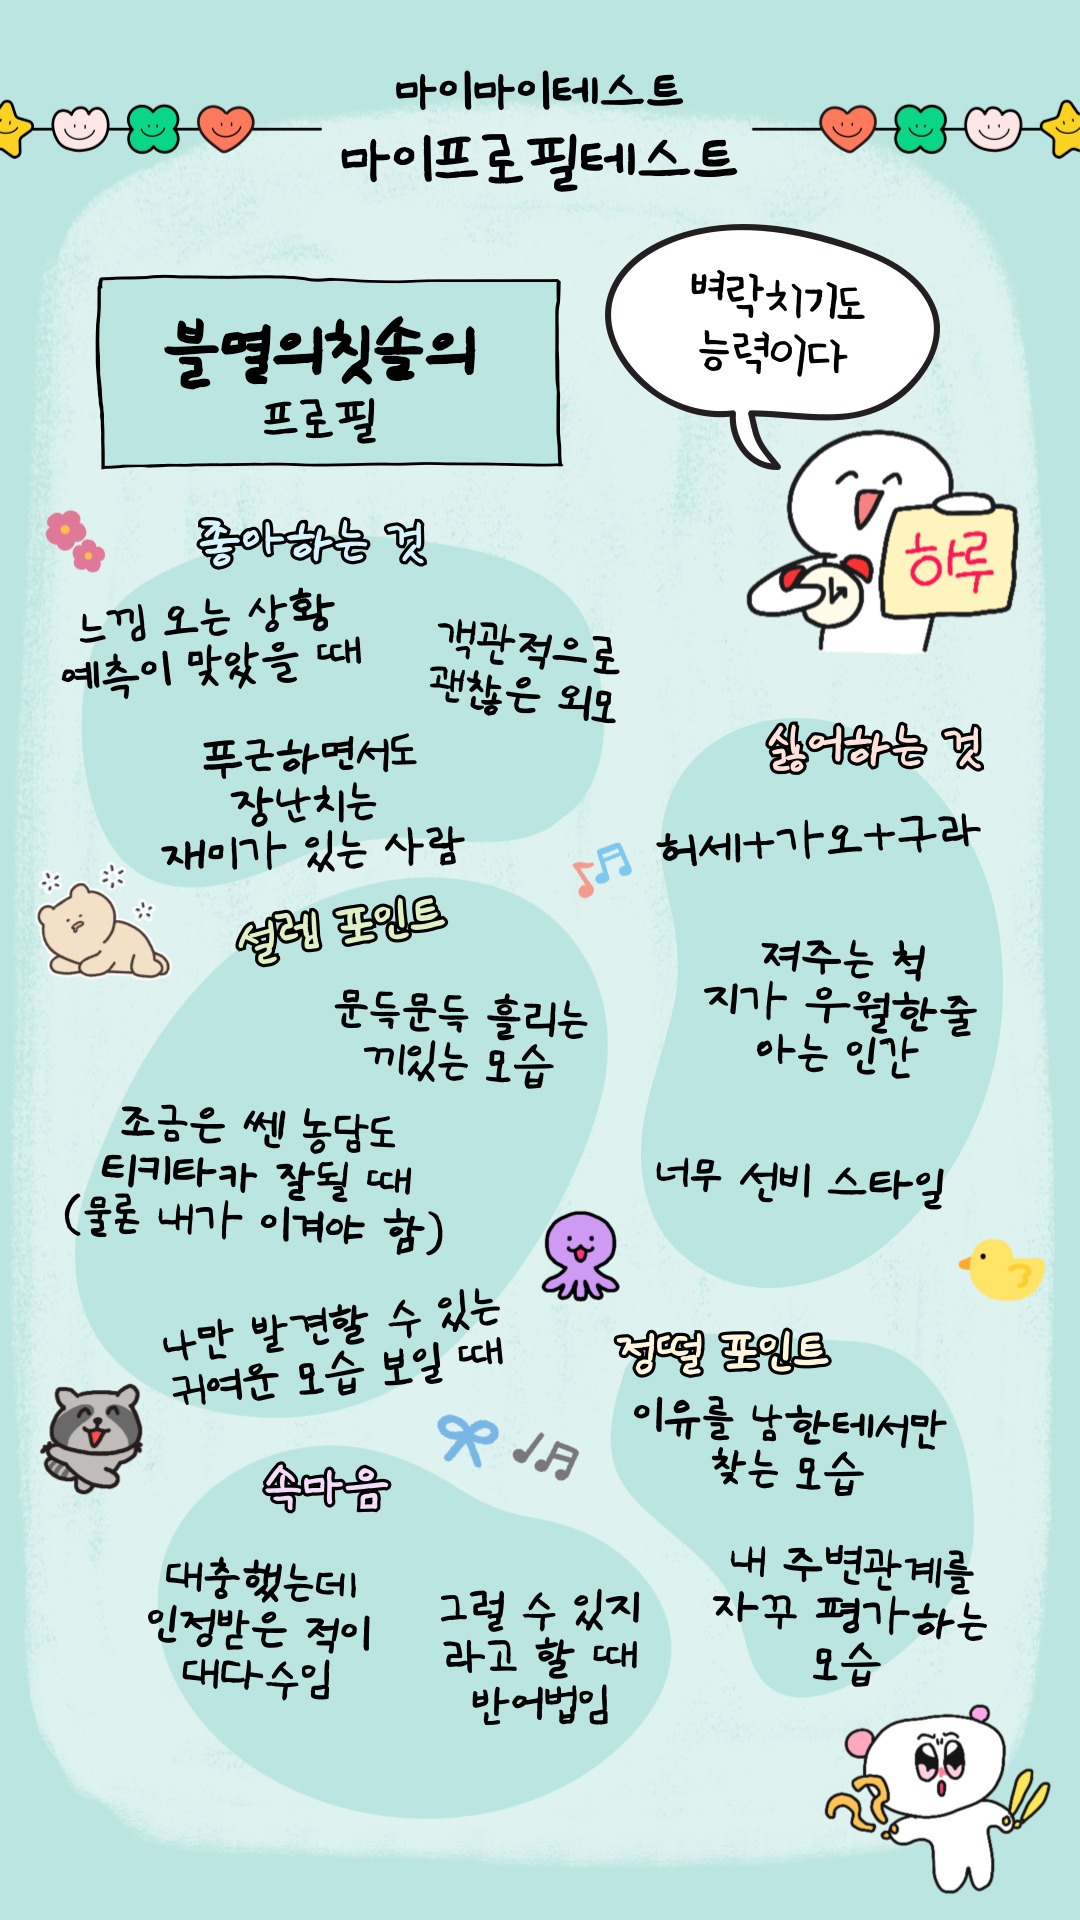 마이마이테스트
마이프로필테스트
불멸의칫솔의
프로필
벼락치기도
능력이다
하루
좋아하는 것
느낌 오는 상황
예측이 맞았을 때
객관적으로
괜찮은 외모
푸근하면서도
장난치는
재미가 있는 사람
싫어하는 것
허세+가오+구라
져주는 척
지가 우월한줄
아는 인간
너무 선비 스타일
설렘 포인트
문득문득 흘리는
끼있는 모습
조금은 쎈 농담도
티키타카 잘될 때
(물론 내가 이겨야 함)
나만 발견할 수 있는
귀여운 모습 보일 때
정떨 포인트
이유를 남한테서만
찾는 모습
내 주변관계를
자꾸 평가하는
모습
속마음
대충했는데
인정받은 적이
대다수임
그럴 수 있지
라고 할 때
반어법임